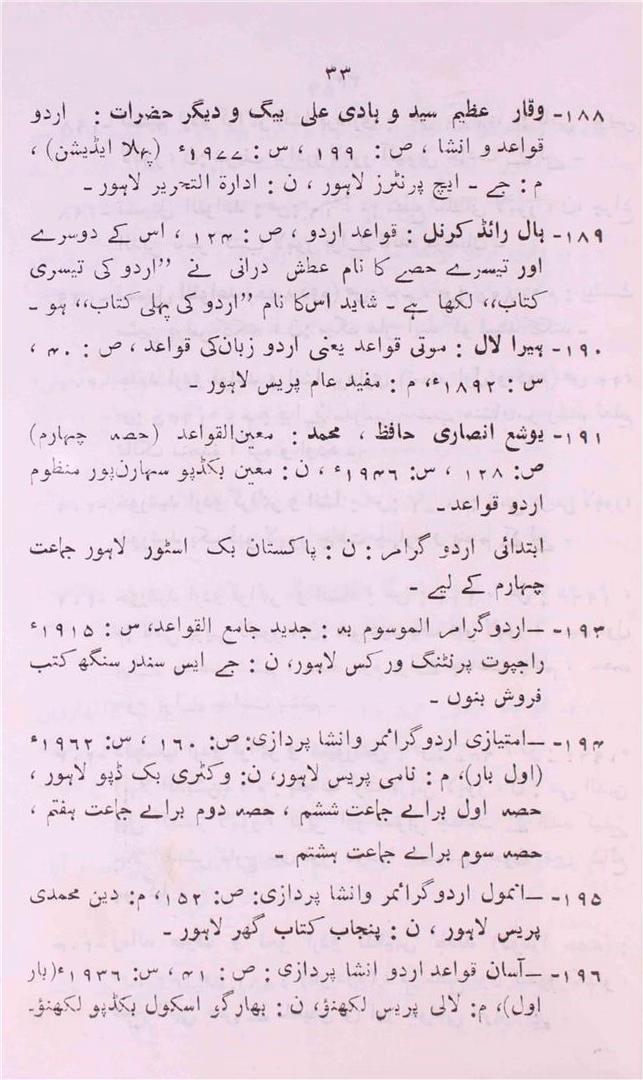 ۳۳
۱۸۸- وقار عظیم سید و ہادی علی بیگ و دیگر حضرات : اردو
قواعد و انشا ، ص : ۱۹۹ ، س : ۱۹۷۰ء (پہلا ایڈیشن) ،
م : جے - ایچ پرنٹرز لاہور ، ن : ادارۃ التحریر لاہور -
۱۸۹- ہال رائڈ کونل : قواعد اردو ، ص : ۱۲۴ ، اس کے دوسرے
اور تیسرے حصے کا نام عطش درانی نے ”اردو کی تیسری
کتاب،، لکھا ہے - شاید اس کا نام ”اردو کی پہلی کتاب،، ہو -
۱۹۰- ہیرا لال : موتی قواعد یعنی اردو زبان کی قواعد ، ص : ۴۰ ،
س : ۱۸۹۲ء، م : مفید عام پریس لاہور -
۱۹۱- یوشع انصاری حافظ ، محمد : معین القواعد (حصہ چہارم)
ص : ۱۲۸ ، س : ۱۹۴۶ء ، ن : معین بکڈپو سہارن پور منظوم
اردو قواعد -
ابتدائی اردو گرامر : ن : پاکستان بک اسٹور لاہور جماعت
چہارم کے لیے -
۱۹۳- —اردو گرامر الموسوم بہ : جدید جامع القواعد، س : ۱۹۱۵ء
راجپوت پرنٹنگ ورکس لاہور، ن : جے ایس سندر سنگھ کتب
فروش بنوں -
۱۹۴- —امتیازی اردو گرائمر و انشا پردازی: ص : ۱۶۰ ، س : ۱۹۶۲ء
(اول بار)، م : نامی پریس لاہور، ن: وکٹری بک ڈپو لاہور ،
حصہ اول براے جماعت ششم ، حصہ دوم براے جماعت ہفتم ،
حصہ سوم براے جماعت ہشتم —
۱۹۵- —انمول اردو گرائمر و انشا پردازی: ص: ۱۵۲ ، م: دین محمدی
پریس لاہور ، ن : پنجاب کتاب گھر لاہور -
۱۹۶- —آسان قواعد اردو انشا پردازی : ص : ۴۱ ، س : ۱۹۳۶ء(بار
اول)، م: لالی پریس لکھنؤ، ن : بھارگو اسکول بکڈپو لکھنؤ-